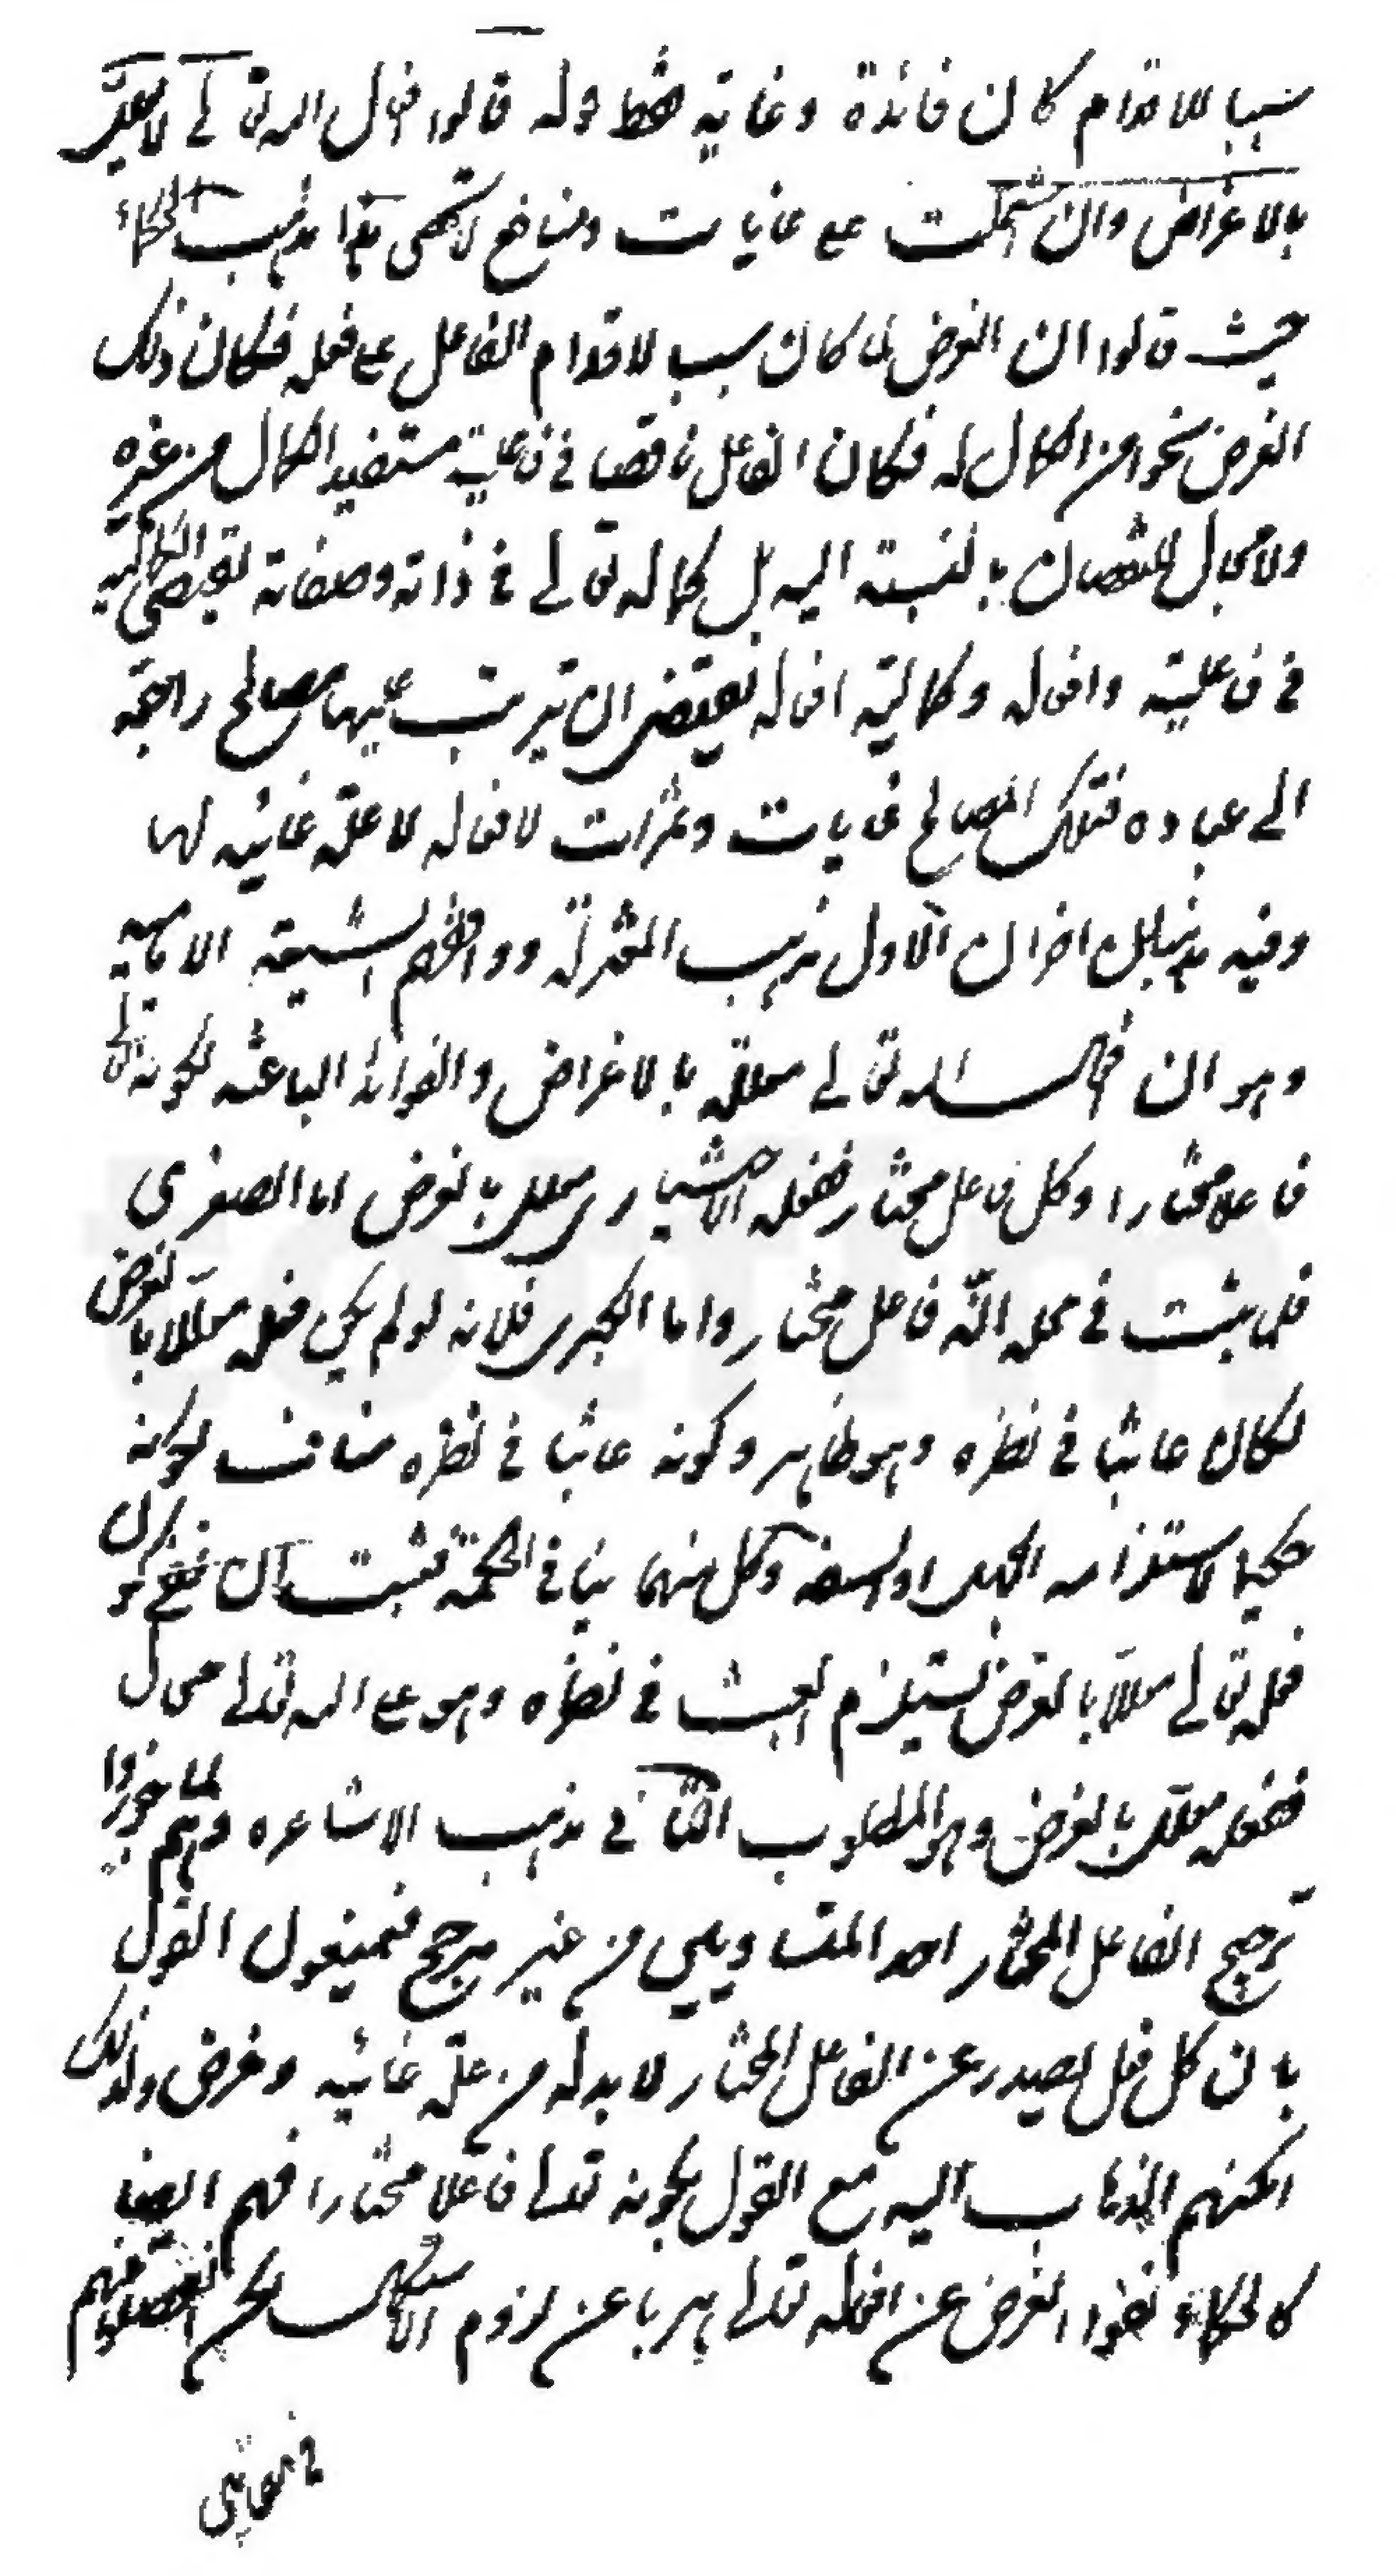 سببا للاقدام كان فائدة وغاية فقط قوله قالوا افعال الله تعالى لا تعلل
بالاغراض وان اشتملت على غايات ومنافع لا تحصى هذا مذهب الحكماء
حيث قالوا ان الغرض لما كان سببا لاقدام الفاعل على فعله فكان ذلك
الغرض نحوا من الكمال له فكان الفاعل ناقصا في فاعليته مستفيد الكمال من غيره
ولا مجال للنقصان بالنسبة اليه بل كماله تعالى في ذاته وصفاته تقتضى الكمالية
في فاعليته وافعاله وكمالية افعاله تقتضى ان تترتب عليها مصالح راجعة
الى عباده فتلك المصالح غايات وثمرات لافعاله لا علة غائية لها
وفيه مذهبان اخران الاول مذهب المعتزلة ووافقهم الشيعة الامامية
وهو ان افعال الله تعالى معللة بالاغراض والفوائد الباعثة لكونه تعالى
فاعلا مختارا وكل فاعل مختار ففعله الاختيارى معلل بالغرض اما الصغرى
فلما ثبت في محله انه فاعل مختار واما الكبرى فلانه لو لم يكن فعله معللا بالغرض
لكان عابثا في نظره وهو ظاهر وكونه عابثا في نظره مناف لكونه
حكيما لاستلزامه الجهل او السفه وكل منهما ينافي الحكمة فثبت ان نفى كون
فعله تعالى معللا بالغرض يستلزم العبث في نظره وهو على الله تعالى محال
ففعله معلل بالغرض وهو المطلوب الثاني مذهب الاشاعره وهم لما جوزوا
ترجيح الفاعل المختار احد المتساويين من غير مرجح فيمنعون القول
بان كل فعل يصدر عن الفاعل المختار لا بد له من علة غائية وغرض ولذلك
امكنهم الذهاب اليه مع القول بكونه تعالى فاعلا مختارا فهم ايضا
كالحكماء نفوا الغرض عن افعاله تعالى هربا عن لزوم الاستكمال لكن